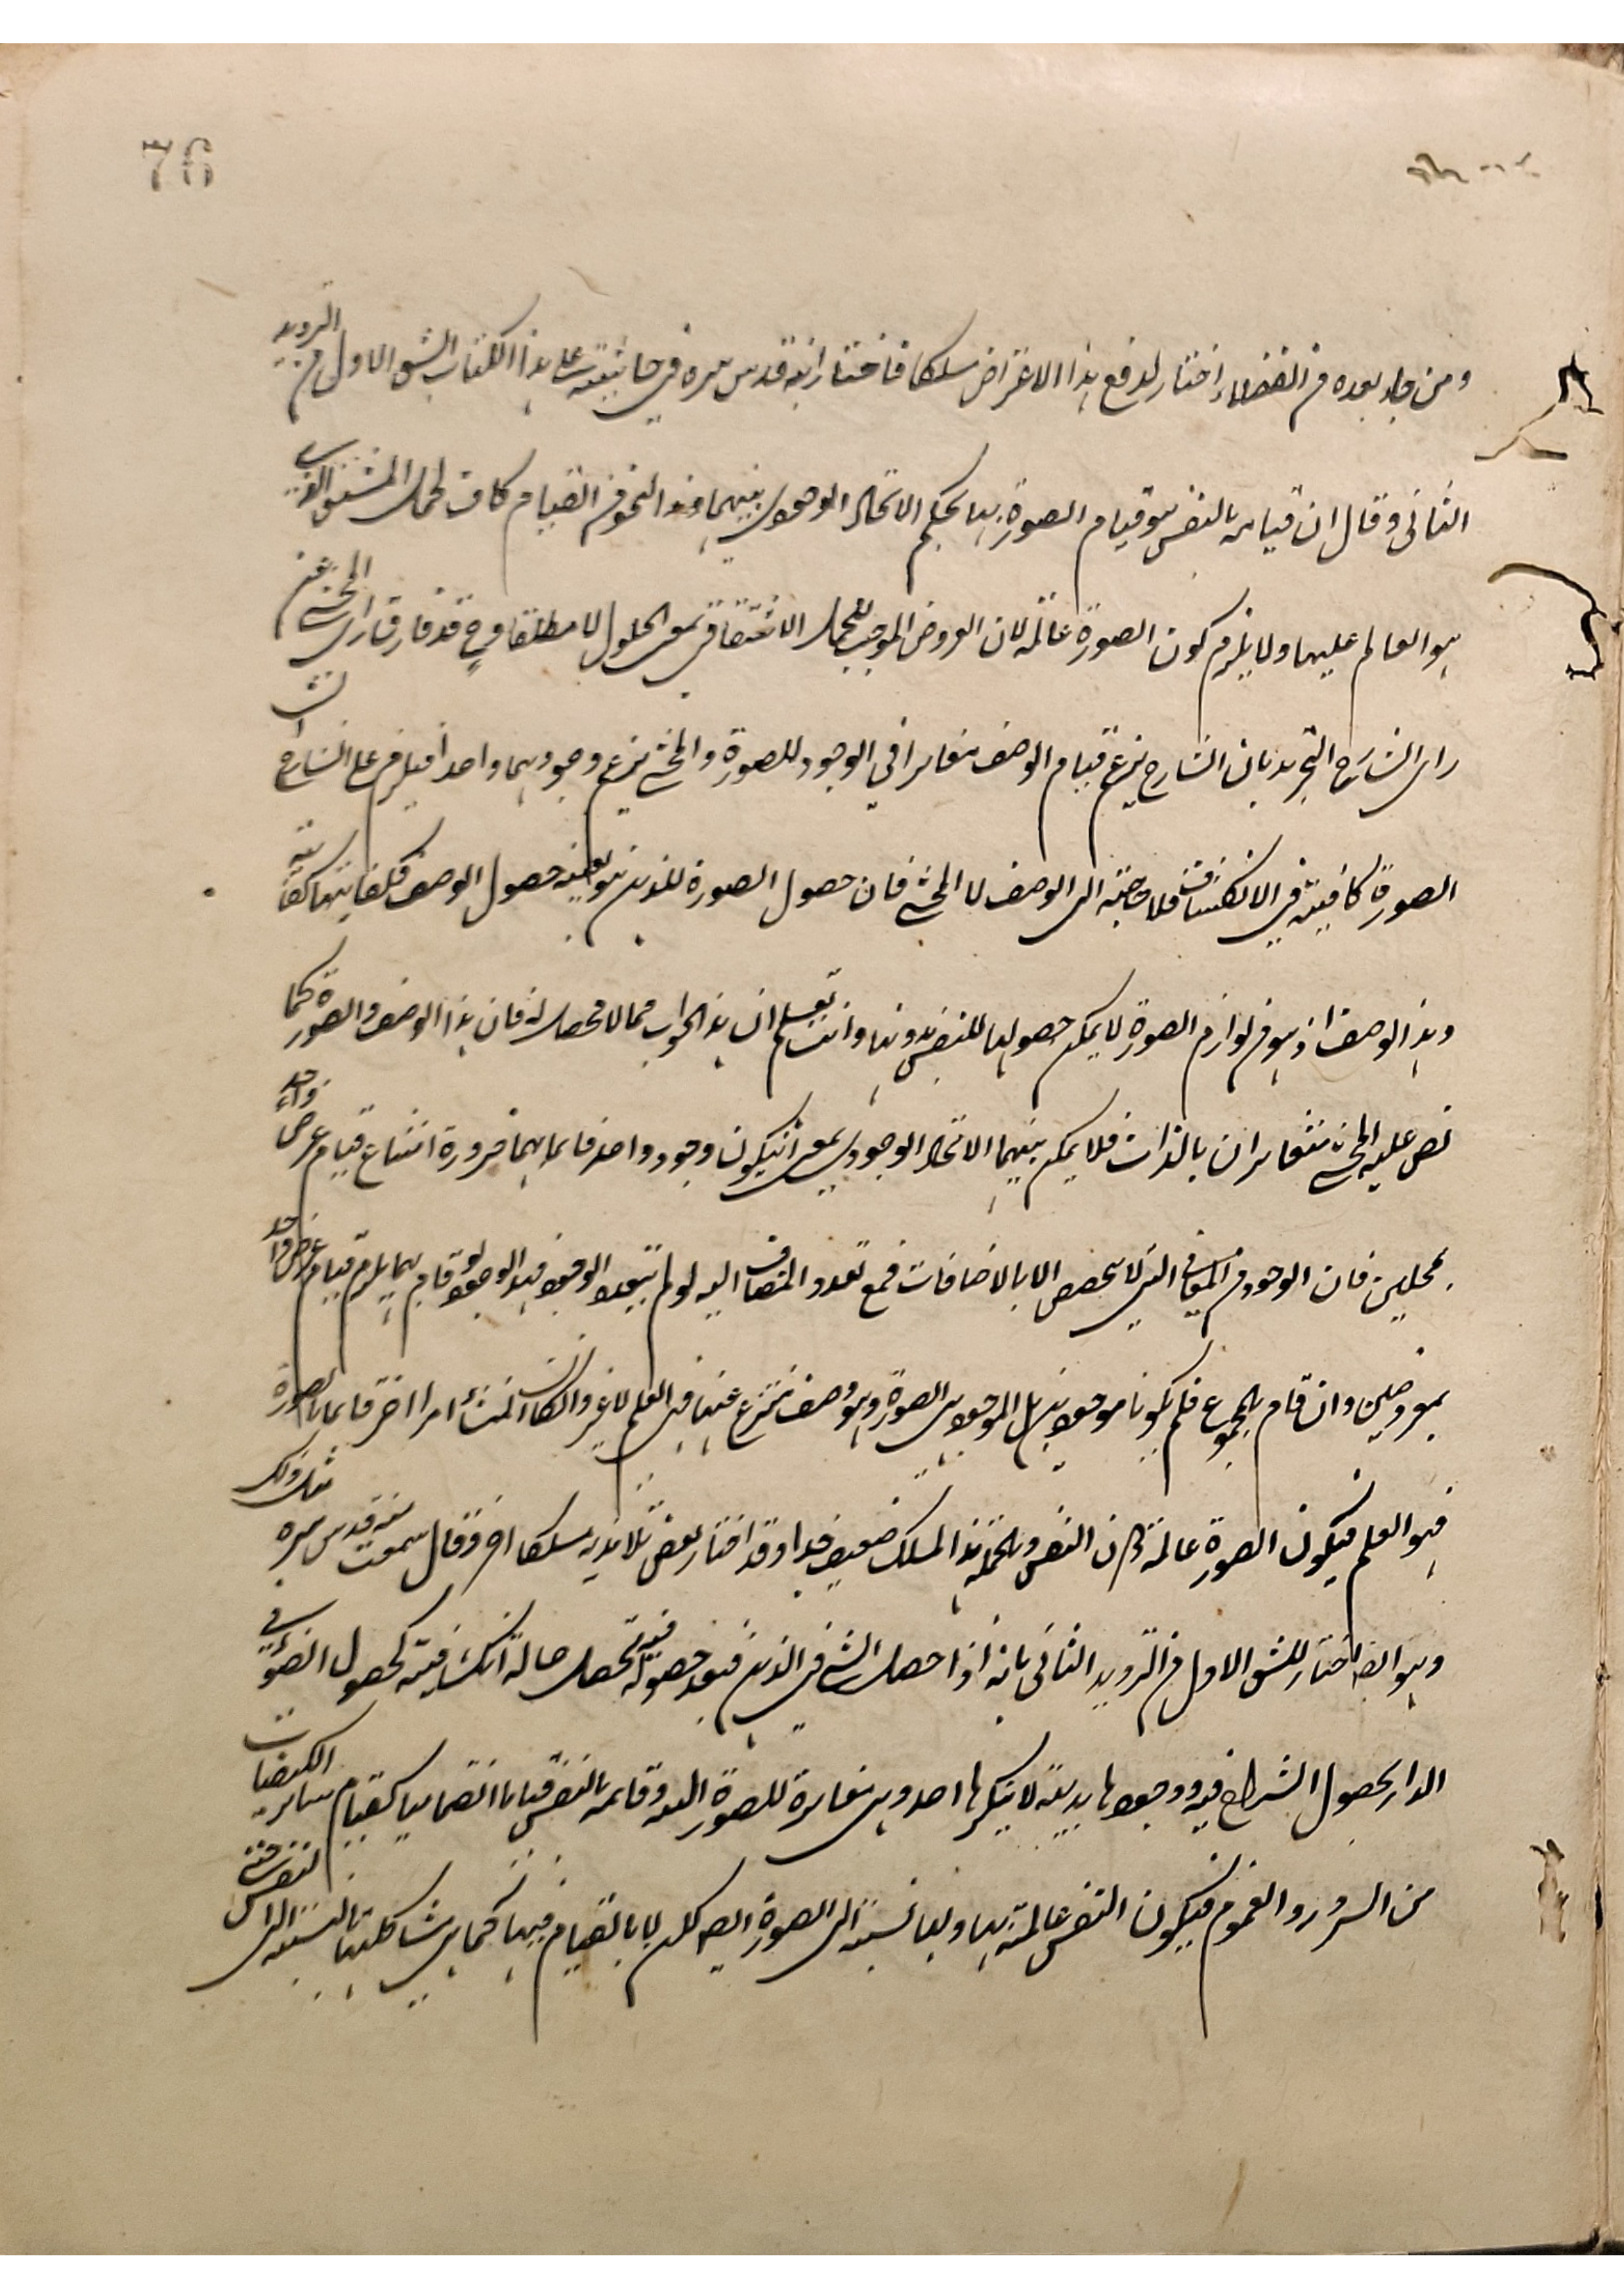 76
ومن جاء بعده من الفضلاء اختار لدفع هذا الاعتراض مسلكا فاختار ابنه قدس سره في حاشيته على هذا الكتاب الشق الاول من الترديد
الثانى وقال ان قيامه بالنفس هو قيام الصورة بها بحكم الاتحاد الوجودى بينهما وهذا النحو من القيام كاف لحمل المشتق الذى
هو العالم عليها ولا يلزم كون الصورة عالمة لان العروض الموجب للحمل الاشتقاقى بمعنى الحلول لا مطلقا وح قد فارق راى المحشى عن
راى الشارح التجريد بان الشارح يزعم قيام الوصف مغايرا في الوجود للصورة والمحشى يزعم وجودهما واحدا فيلزم على الشارح ان
الصورة كافية في الانكشاف فلا حاجة الى الوصف لا المحشى فان حصول الصورة للذهن هو بعينه حصول الوصف فكفايتها كفايته
وهذا الوصف اذ هو من لوازم الصورة لا يمكن حصولها للنفس بدونها وانت تعلم ان هذا الجواب مما لا محصل له فان هذا الوصف والصورة كما
نص عليه المحشى متغايران بالذات فلا يمكن بينهما الاتحاد الوجودى بمعنى ان يكون وجود واحد قائما بهما ضرورة امتناع قيام عرض واحد
بمحلين فان الوجود من المعانى التى لا تحصص الا بالاضافات فمع تعدد المضاف اليه لو لم يتعدد الوجود فهذا الوجود لو قام بهما يلزم قيام عرض واحد
بمعروضين وان قام بالمجموع فلم يكونا موجودين بل الموجود هى الصورة وهو وصف منتزع عنها فهى العلم لا غير وان كان المنشأ امرا اخر قائما بالصورة
فهو العلم فيكون الصورة عالمة دون النفس وبالجملة هذا المسلك ضعيف جدا وقد اختار بعض تلامذته مسلكا اخر وقال سمعت منه قدس سره مثل ذلك
وهو انه اختار للشق الاول من الترديد الثانى بانه اذا حصل الشئ في الذهن فبعد حصوله فيه تحصل حالة انكشافية كحصول الضوء في
الدار بحصول السراج فيه ووجودها بديهة لا ينكرها احد وهى مغايرة للصورة العلمية وقائمة بالنفس قياما انضماميا كقيام سائر الكيفيات
من السرور والغموم فيكون النفس عالمة بها ولها نسبة الى الصورة ايضا لكن لا بالقيام فيها كما هى شاكلتها بالنسبة الى النفس